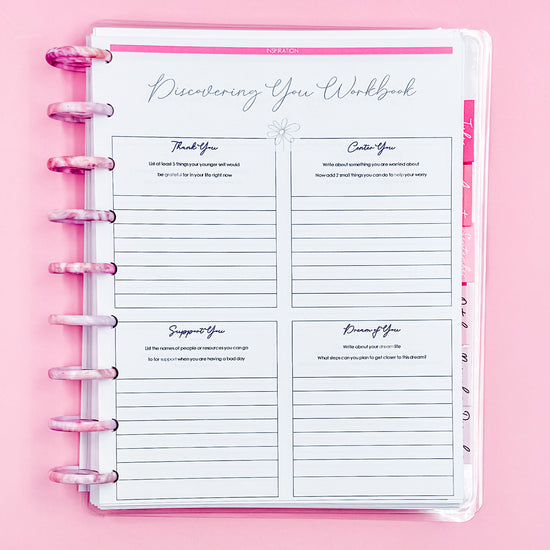 INSPIRATION
Discovering You Workbook
Thank You
List at least 5 things your younger self would
be grateful for in your life right now
Center You
Write about something you are worried about
Now add 2 small things you can do to help your worry
Support You
List the names of people or resources you can go
to for support when you are having a bad day
Dream of You
Write about your dream life
What steps can you plan to get closer to this dream?